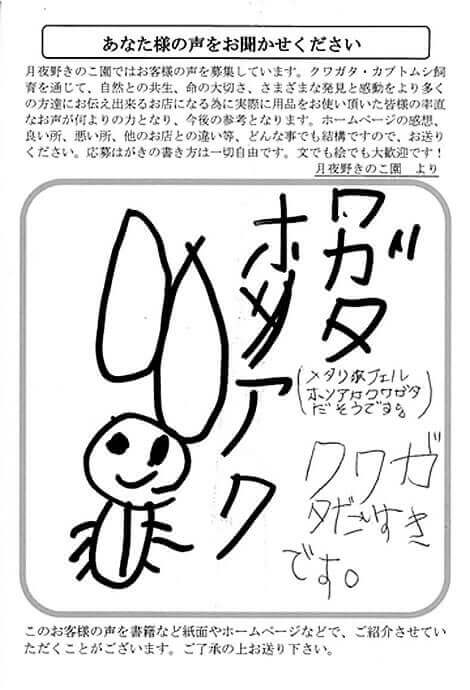 あなた様の声をお聞かせください
月夜野きのこ園ではお客様の声を募集しています。クワガタ・カブトムシ飼
育を通じて、自然との共生、命の大切さ、さまざまな発見と感動をより多く
の方達にお伝え出来るお店になる為に実際に用品をお使い頂いた皆様の率直
なお声が何よりの力となり、今後の参考となります。ホームページの感想、
良い所、悪い所、他のお店との違い等、どんな事でも結構ですので、お送り
ください。応募はがきの書き方は一切自由です。文でも絵でも大歓迎です！
月夜野きのこ園　より
ワガタ
ホソアク
(メタリホフェル
ホソアカクワガタ
だそうです。)
クワガ
タだいすき
です。
このお客様の声を書籍など紙面やホームページなどで、ご紹介させてい
ただくことがございます。ご了承の上お送り下さい。